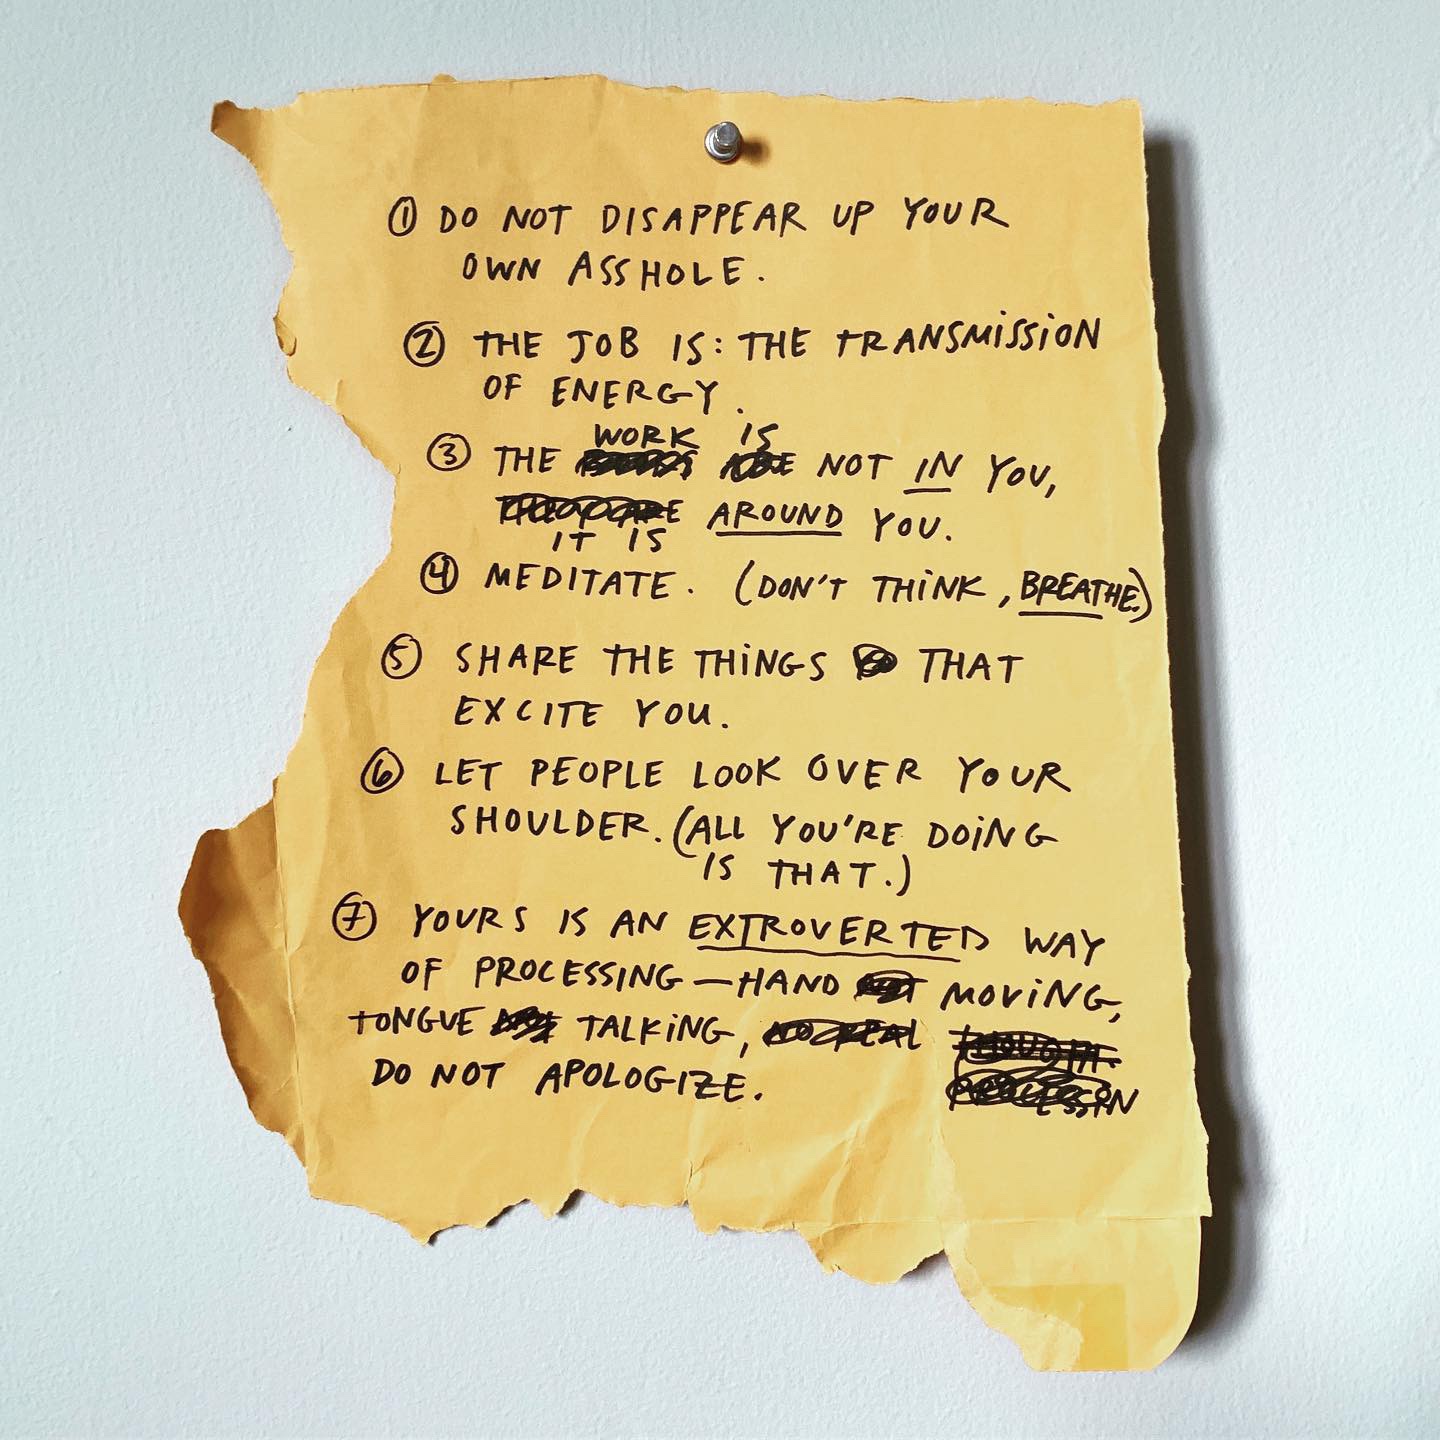 ① DO NOT DISAPPEAR UP YOUR
OWN ASSHOLE.
② THE JOB IS: THE TRANSMISSION
OF ENERGY.
WORK IS
③ THE NOT IN YOU,
AROUND YOU.
IT IS
④ MEDITATE. (DON'T THINK, BREATHE.)
⑤ SHARE THE THINGS THAT
EXCITE YOU.
⑥ LET PEOPLE LOOK OVER YOUR
SHOULDER. (ALL YOU'RE DOING
IS THAT.)
⑦ YOURS IS AN EXTROVERTED WAY
OF PROCESSING — HAND MOVING,
TONGUE TALKING,
DO NOT APOLOGIZE.